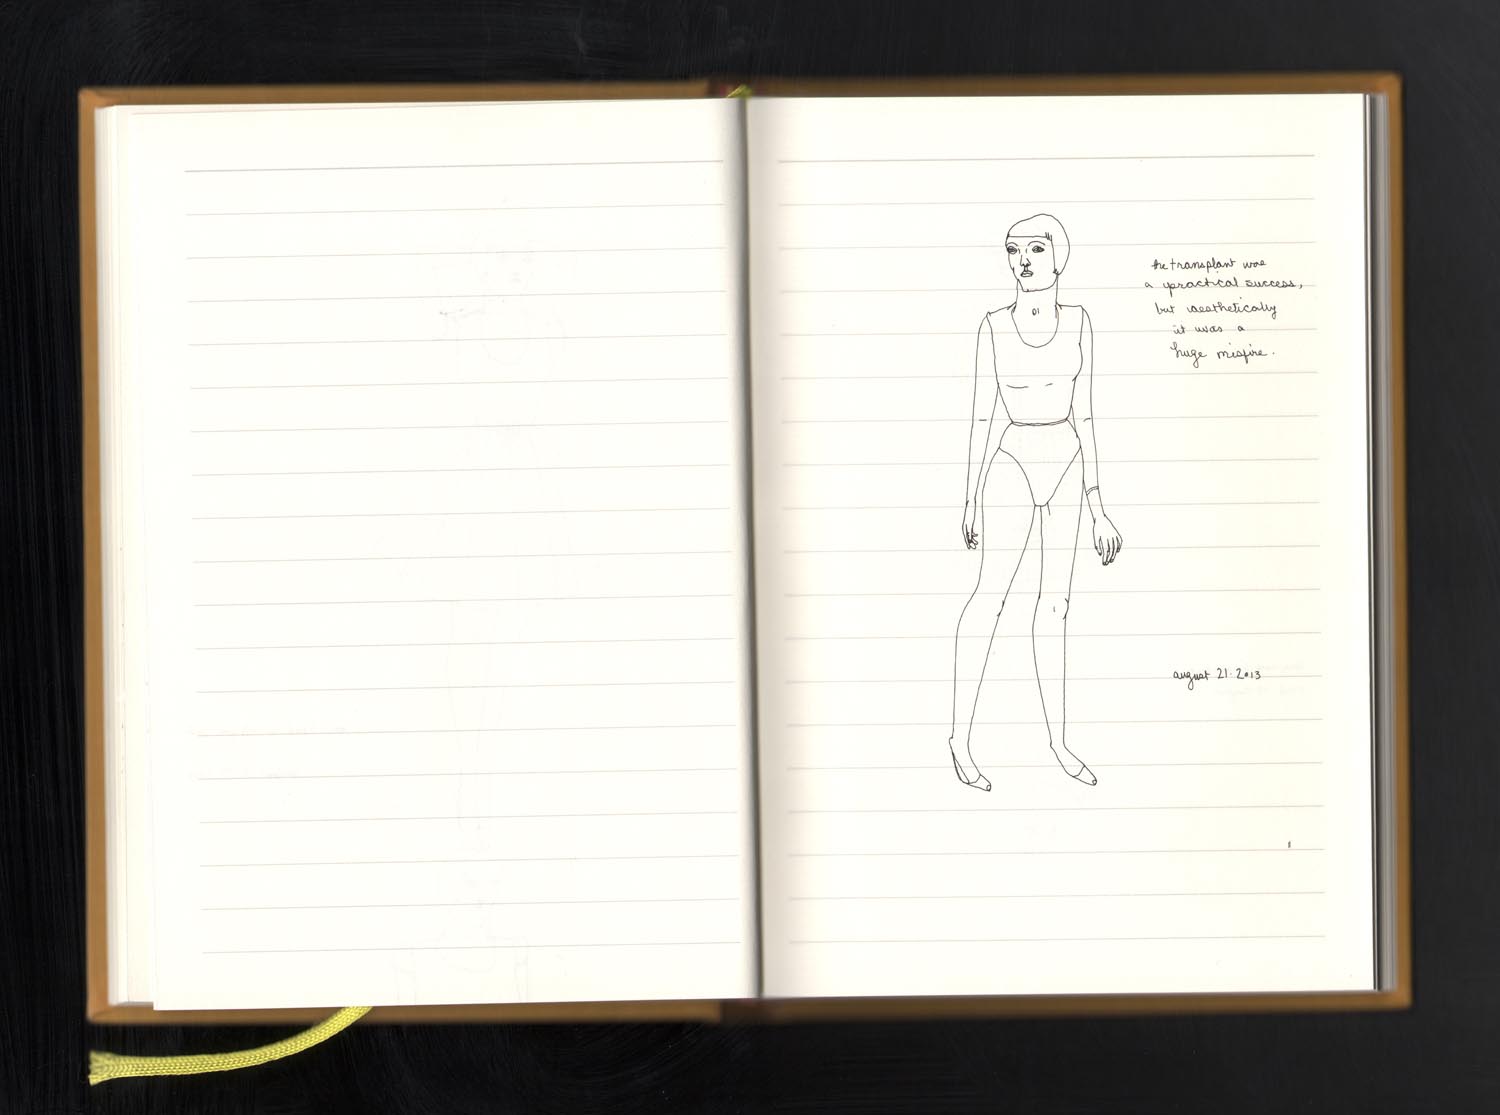 the transplant was
a practical success,
but aesthetically
it was a
huge misfire.
august 21. 2013